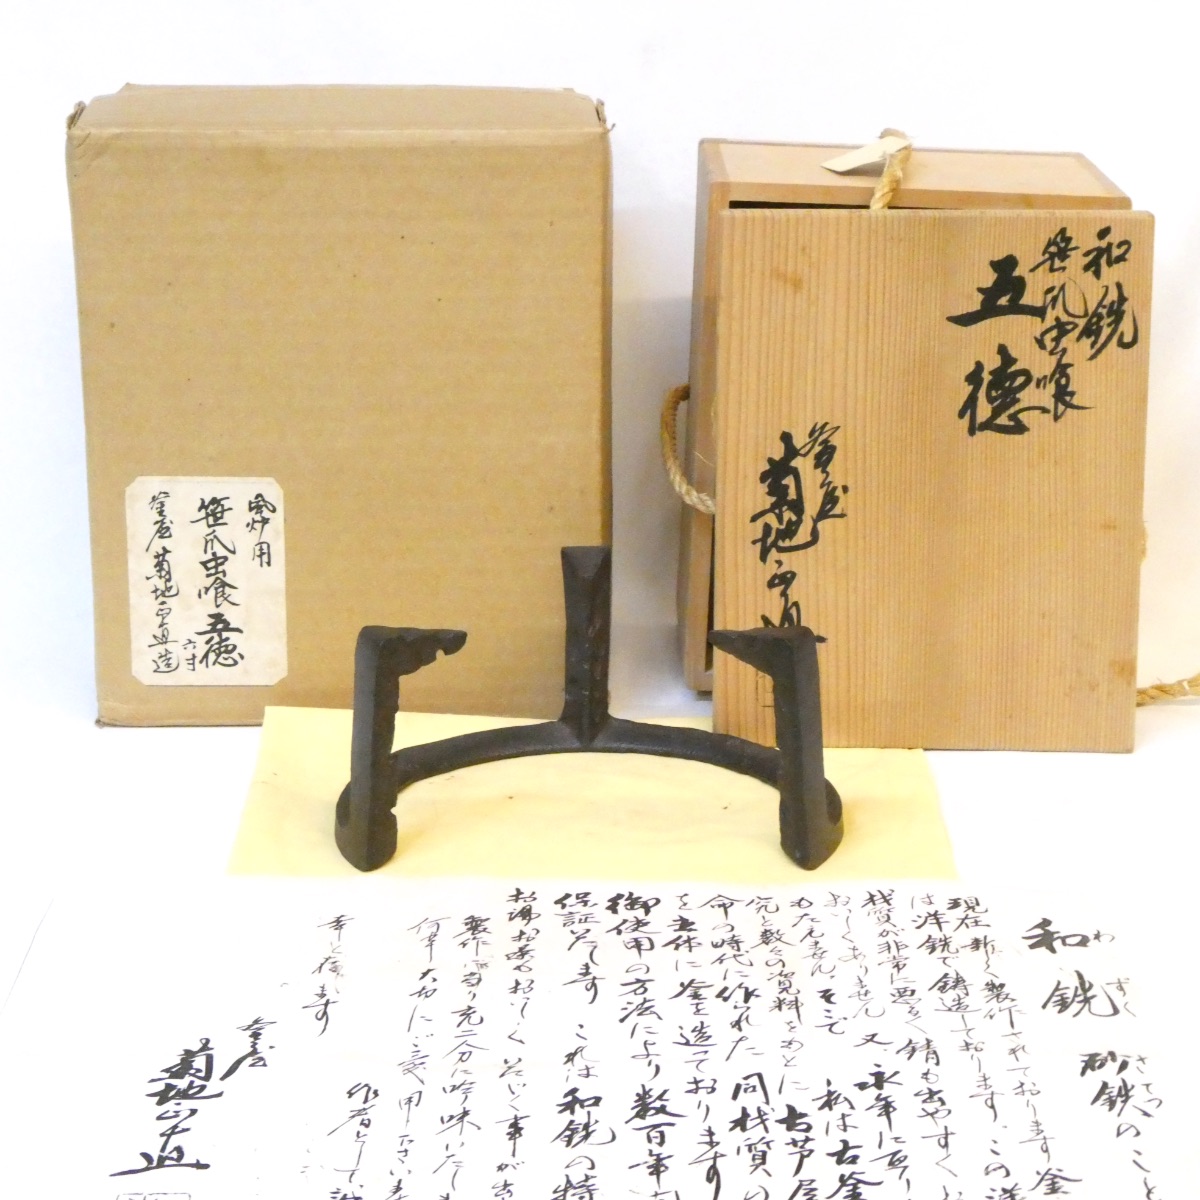 和銑
笹爪虫喰
五徳
釜屋
菊地正直
風炉用
笹爪虫喰五徳
六寸
釜屋 菊地正直造
和銑 砂鉄のこと
わずく さてつ
現在新しく製作されております釜
は洋銑で鋳造しております、この洋
材質が非常に悪く錆も出やすく
おいしくありません 又、永年に亘り
もたえません、そこで 私は古釜
究と数々の資料をもとに 古芦屋
命の時代に作られた 同材質の
を主体に 釜を造っております
御使用の方法により 数百年
保証いたします これは 和銑の特
お湯お茶もおいしくいたゞく事が出
製作に当り充二分に吟味いた
何卒大切にご愛用下さいま
幸と存じます
作者として
釜屋
菊地正直